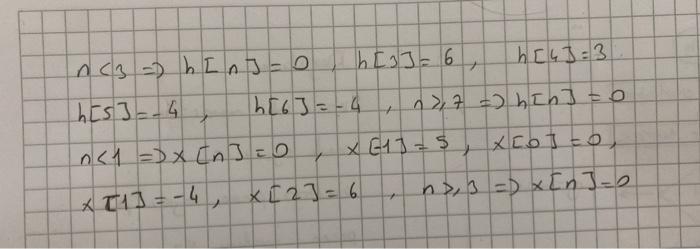 n<3 => h[n]=0, h[3]=6, h[4]=3
h[5]=-4, h[6]=-4, n≥7 => h[n]=0
n<1 => x[n]=0, x[-1]=5, x[0]=0,
x[1]=-4, x[2]=6, n≥3 => x[n]=0